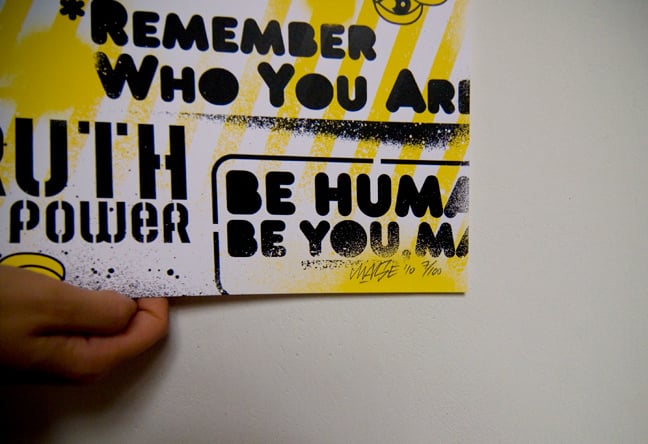 *REMEMBER
WHO YOU ARE
RUTH
POWER
BE HUMA
BE YOU, MA
'10 7/100